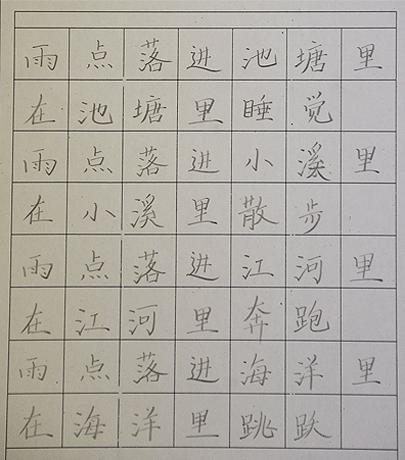 雨点落进池塘里
在池塘里睡觉
雨点落进小溪里
在小溪里散步
雨点落进江河里
在江河里奔跑
雨点落进海洋里
在海洋里跳跃